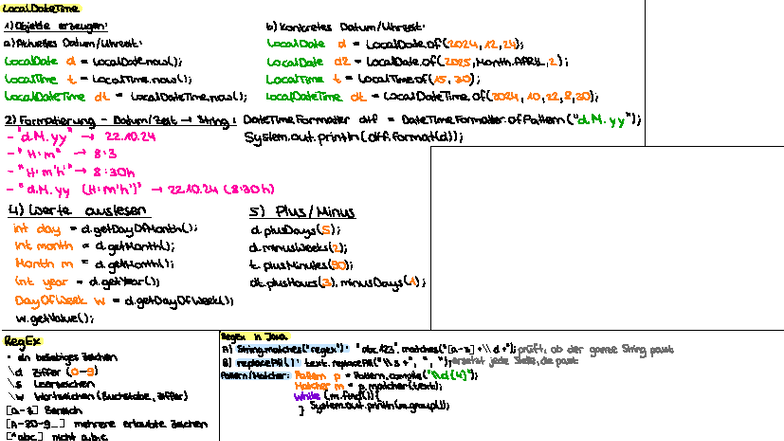 LocalDateTime
1) Objekte erzeugen:
a) Aktuelles Datum/Uhrzeit:
LocalDate d = LocalDate.now();
LocalTime t = LocalTime.now();
LocalDateTime dt = LocalDateTime.now();
b) Konkretes Datum/Uhrzeit:
LocalDate d = LocalDate.of(2024, 12, 24);
LocalDate d2 = LocalDate.of(2025, Month.APRIL, 2);
LocalTime t = LocalTime.of(15, 30);
LocalDateTime dt = LocalDateTime.of(2024, 10, 22, 8, 30);
2) Formatierung - Datum/Zeit → String: DateTimeFormatter dtf = DateTimeFormatter.ofPattern("d.M.yy");
System.out.println(dtf.format(d));
- "d.M.yy" → 22.10.24
- "H:m" → 8:3
- "H:m'h'" → 8:30h
- "d.M.yy (H:m'h')" → 22.10.24 (8:30h)
4) Werte auslesen
int day = d.getDayOfMonth();
int month = d.getMonth();
Month m = d.getMonth();
int year = d.getYear();
DayOfWeek w = d.getDayOfWeek();
w.getValue();
5) Plus/Minus
d.plusDays(5);
d.minusWeeks(2);
t.plusMinutes(90);
dt.plusHours(3).minusDays(1);
RegEx
. ein beliebiges Zeichen
\d Ziffer (0-9)
\s Leerzeichen
\w Wortzeichen (Buchstabe, Ziffer)
[a-z] Bereich
[A-Z0-9_] mehrere erlaubte Zeichen
[^abc] nicht a,b,c
RegEx in Java
A) String.matches("regex"): "abc123".matches("[a-z]+\\d+"); prüft, ob der ganze String passt
B) replaceAll(): text.replaceAll("\\s+", " "); ersetzt jede Stelle, die passt
Pattern/Matcher: Pattern p = Pattern.compile("\\d{4}");
Matcher m = p.matcher(text);
while (m.find()){
System.out.println(m.group());
}